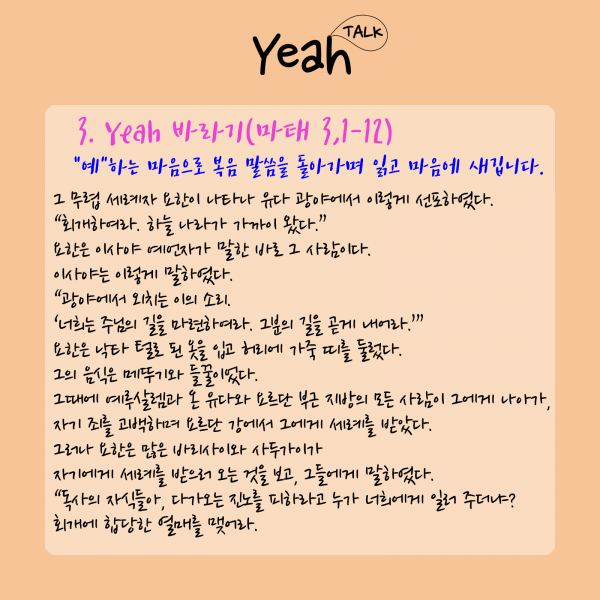 Yeah TALK
3. Yeah 바라기(마태 3,1-12)
"예"하는 마음으로 복음 말씀을 돌아가며 읽고 마음에 새깁니다.
그 무렵 세례자 요한이 나타나 유다 광야에서 이렇게 선포하였다.
“회개하여라. 하늘 나라가 가까이 왔다.”
요한은 이사야 예언자가 말한 바로 그 사람이다.
이사야는 이렇게 말하였다.
“광야에서 외치는 이의 소리.
‘너희는 주님의 길을 마련하여라. 그분의 길을 곧게 내어라.’”
요한은 낙타 털로 된 옷을 입고 허리에 가죽 띠를 둘렀다.
그의 음식은 메뚜기와 들꿀이었다.
그때에 예루살렘과 온 유다와 요르단 부근 지방의 모든 사람이 그에게 나아가,
자기 죄를 고백하며 요르단 강에서 그에게 세례를 받았다.
그러나 요한은 많은 바리사이와 사두가이가
자기에게 세례를 받으러 오는 것을 보고, 그들에게 말하였다.
“독사의 자식들아, 다가오는 진노를 피하라고 누가 너희에게 일러 주더냐?
회개에 합당한 열매를 맺어라.